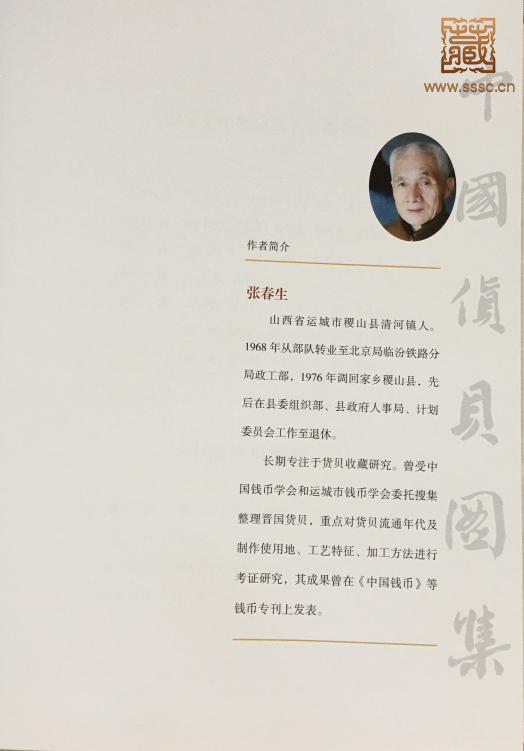 藏
www.sssc.cn
中國貨貝圖集
作者简介
张春生
山西省运城市稷山县清河镇人。
1968年从部队转业至北京局临汾铁路分
局政工部，1976年调回家乡稷山县，先
后在县委组织部、县政府人事局、计划
委员会工作至退休。
长期专注于货贝收藏研究。曾受中
国钱币学会和运城市钱币学会委托搜集
整理晋国货贝，重点对货贝流通年代及
制作使用地、工艺特征、加工方法进行
考证研究，其成果曾在《中国钱币》等
钱币专刊上发表。